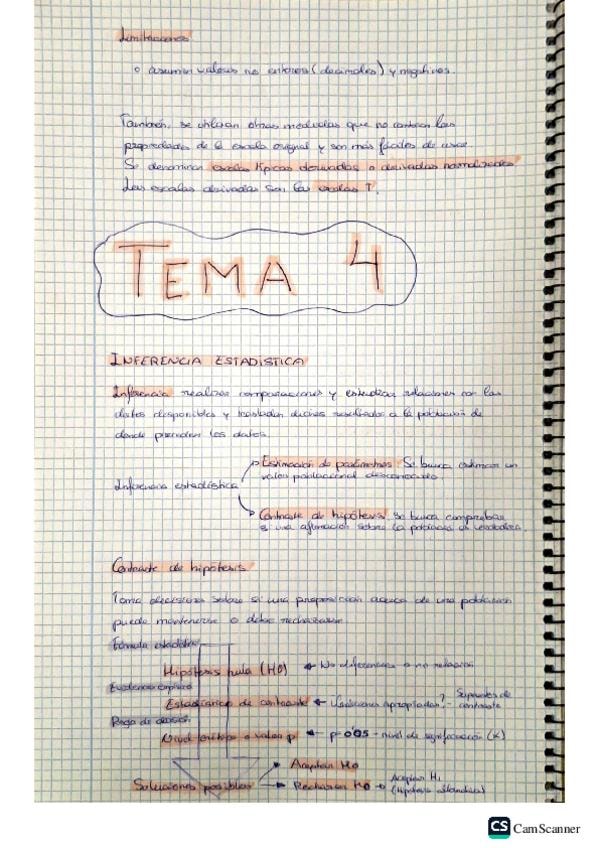 Limitaciones
o asumir valores no enteros (decimales) y negativos.
También, se utilizan otras medidas que no cambian las
propiedades de la escala original y son más fáciles de usar.
Se denominan escalas típicas derivadas o derivadas normalizadas
Las escalas derivadas son las escalas T.
TEMA 4
INFERENCIA ESTADÍSTICA
Inferencia realizar comparaciones y estudiar relaciones con los
datos disponibles y trasladar dichos resultados a la población de
donde provienen los datos.
Estimación de parámetros: Se busca estimar un
valor poblacional desconocido.
Inferencia estadística
Contraste de hipótesis: se busca comprobar
si una afirmación sobre la población es verdadera.
Contraste de hipótesis
Toma decisiones sobre si una proposición acerca de una población
puede mantenerse o debe rechazarse
Fórmula estadística
Hipótesis nula (H0) No diferencias o no relación
Evidencia empírica
Estadístico de contraste apropiadas? - Supuestos de
contraste
Regla de decisión
Nivel crítico o valor p p=0'05 - nivel de significación (α)
Aceptar H0
Soluciones posibles
Rechazar H0 Aceptar H1
CS CamScanner